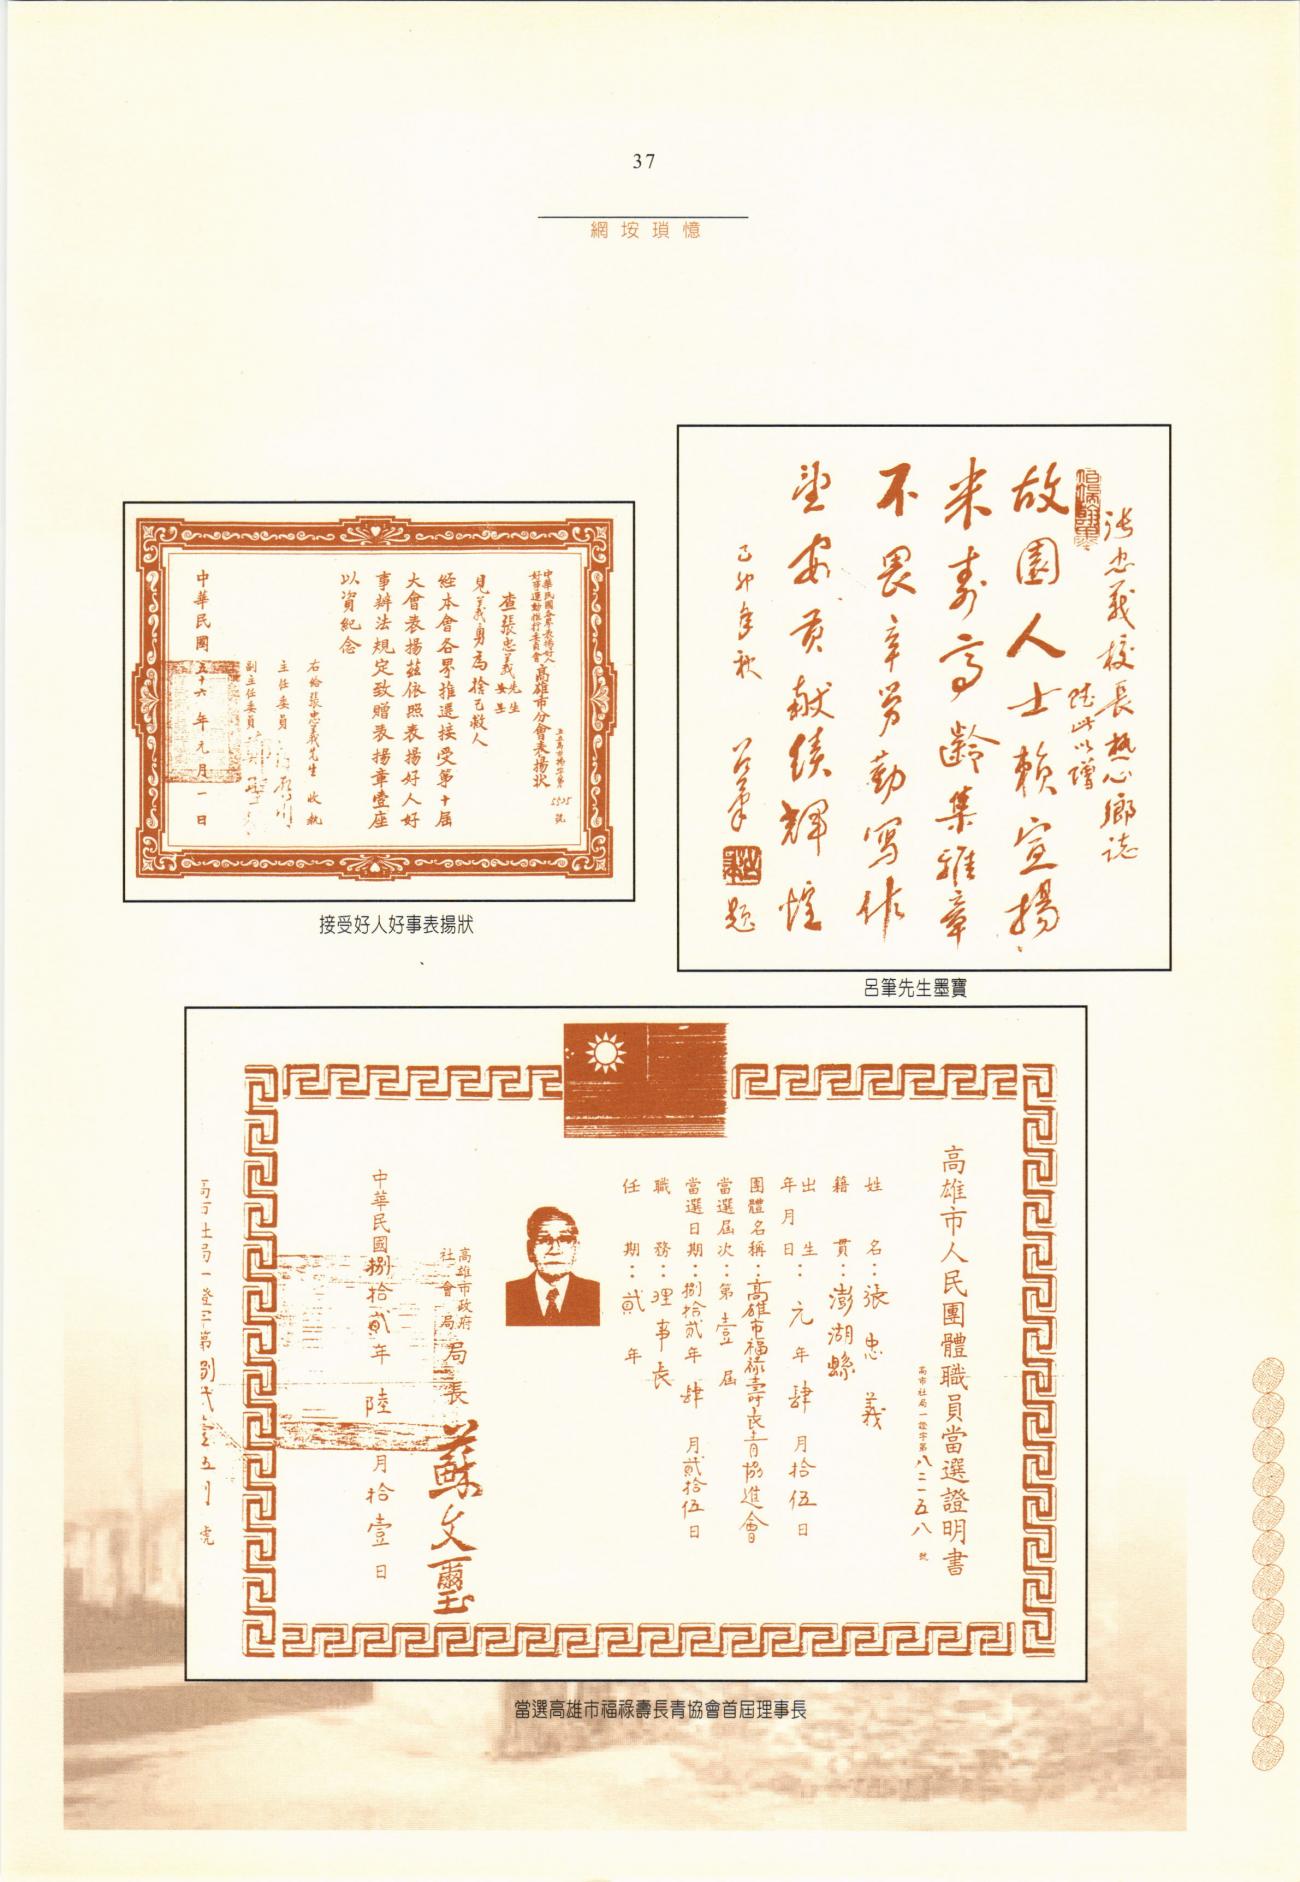 37
網垵瑣憶
中華民國各界表揚好人
好事運動推行委員會
高雄市分會表揚狀
5525
號
查張忠義先生
女士
見義勇為捨己救人
經本會各界推選接受第十屆
大會表揚茲依照表揚好人好
事辦法規定致贈表揚章壹座
以資紀念
右給張忠義先生 收執
主任委員
副主任委員
中華民國五十六年元月一日
接受好人好事表揚狀
張忠義校長熱心鄉誌
故園人士賴宣揚
米壽高齡集雅章
不畏辛勞勤寫作
望安貢獻績輝煌
己卯年秋
呂筆
題
呂筆先生墨寶
高雄市人民團體職員當選證明書
高市社局一證字第八二一五八號
姓名：張忠義
籍貫：澎湖縣
出生
年月日：元年肆月拾伍日
團體名稱：高雄市福祿壽長青協進會
當選屆次：第壹屆
當選日期：捌拾貳年肆月貳拾伍日
職務：理事長
任期：貳年
高雄市政府
社會局
局長蘇文璽
中華民國捌拾貳年陸月拾壹日
當選高雄市福祿壽長青協會首屆理事長